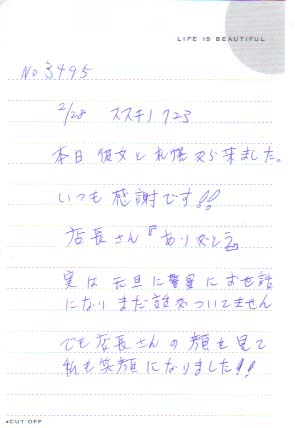 LIFE IS BEAUTIFUL
No 3495
2/28 ススキノ 723
本日 彼女と札幌から来ました。
いつも感謝です!!
店長さん『ありがとう』
実は元旦に警察にお世話
になり まだ話がついてません
でも店長さんの顔を見て
私も笑顔になりました!!
●CUT OFF